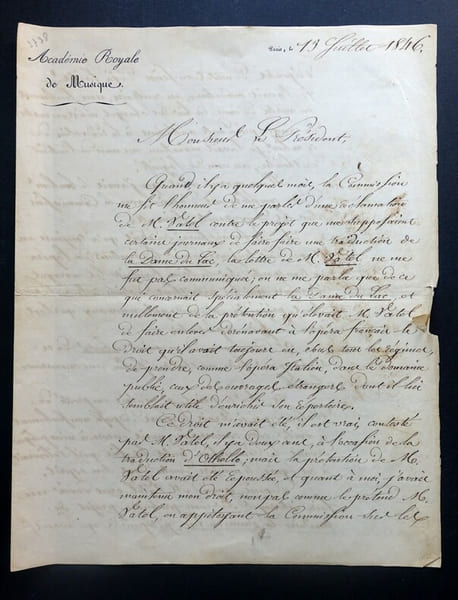 Paris, le 13 Juillet 1846.
Académie Royale
de Musique.
Monsieur Le Président,
Quand, il y a quelques mois, la Commission
me fit l'honneur de me parler d'une réclamation
de M. Vatel contre le projet que me supposaient
certains journaux de faire faire une traduction de
la Dame du Lac, la lettre de M. Vatel ne me
fut pas communiquée; on ne me parla que de ce
qui concernait spécialement la Dame du Lac, et
nullement de la prétention qu'élevait M. Vatel
de faire enlever dorénavant à l'opéra français le
droit qu'il avait toujours eu, sous tous les régimes,
de prendre, comme l'opéra Italien, dans le domaine
public, ceux des ouvrages étrangers dont il lui
semblait utile d'enrichir son répertoire.
Ce droit m'avait été, il est vrai, contesté
par M. Vatel, il y a deux ans, à l'occasion de la
traduction d'Othello; mais la prétention de M.
Vatel avait été repoussée, et quant à moi, j'avais
maintenu mon droit, non pas comme le prétend M.
Vatel, en appitoyant la Commission sur les